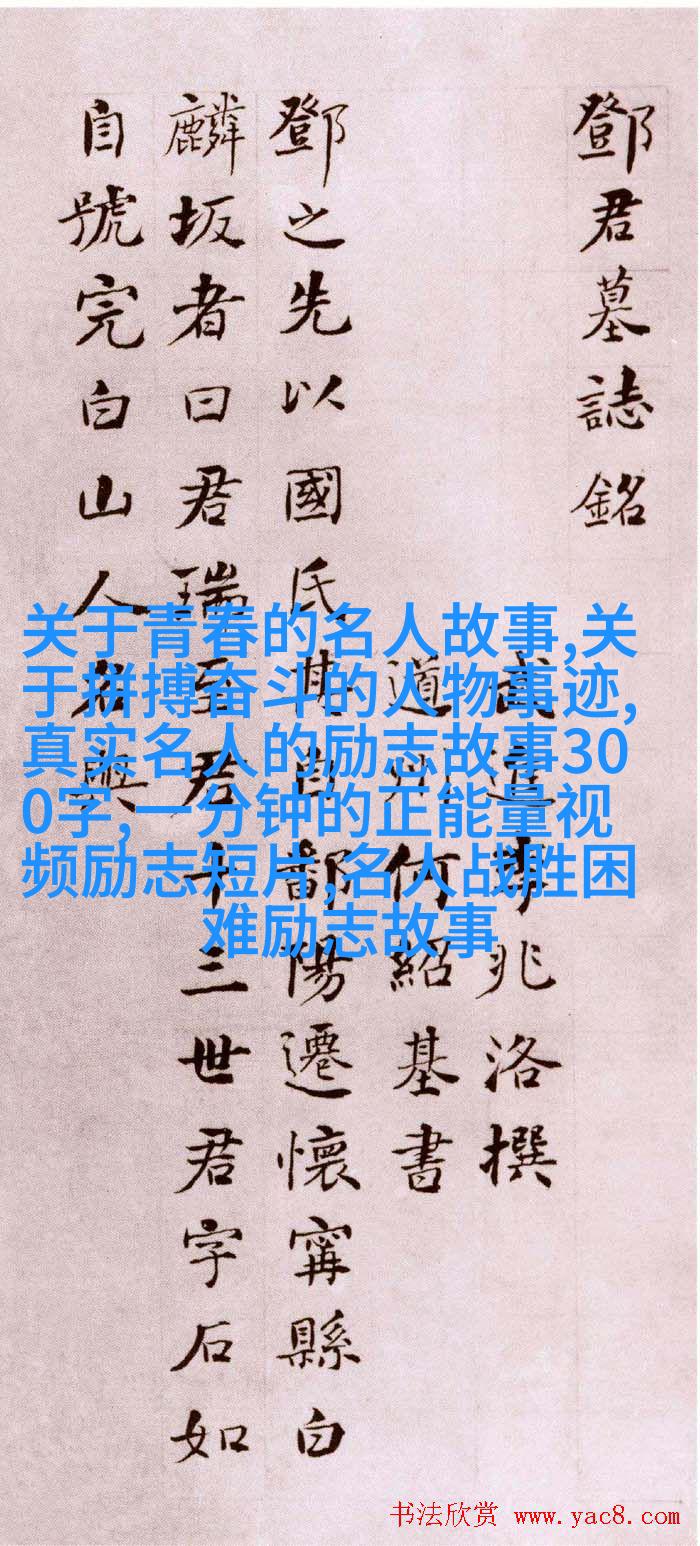 鄧君墓誌銘
武進李兆洛撰
道州何紹基書
鄧之先以國氏其自鄱陽遷懷甯縣白
麟坂者曰君瑞至君十三世君字石如
自號完白山人與
关于青春的名人故事,关
于拼搏奋斗的人物事迹,
真实名人的励志故事30
0字,一分钟的正能量视
频励志短片,名人战胜困
难励志故事
书法欣赏 www.yac8.com